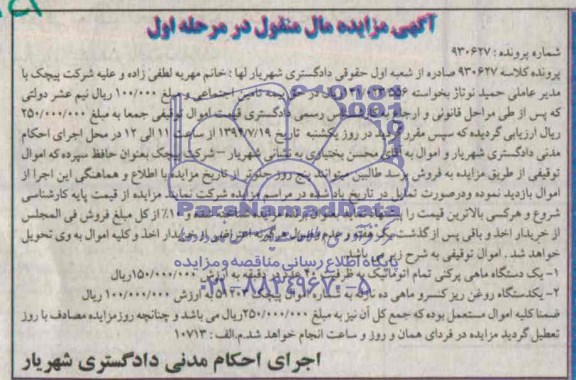 آگهی مزایده مال منقول در مرحله اول
شماره پرونده: ۹۳۰۶۲۷
پرونده کلاسه ۹۳۰۶۲۷ صادره از شعبه اول حقوقی دادگستری شهریار لها: خانم مهریه لطفی زاده و علیه شرکت پیچک با
مدیر عاملی حمید نوتاژ بخواسته ریال در حق بیمه تامین اجتماعی و مبلغ ۱۰۰/۰۰۰ ریال نیم عشر دولتی
که پس از طی مراحل قانونی و ارجاع به کارشناس رسمی دادگستری قیمت اموال توقیفی جمعا به مبلغ ۲۵۰/۰۰۰/۰۰۰
ریال ارزیابی گردیده که سپس مقرر گردید در روز یکشنبه تاریخ ۱۳۹۴/۷/۱۹ از ساعت ۱۱ الی ۱۲ در محل اجرای احکام
مدنی دادگستری شهریار و اموال به آقای محسن بختیاری به نشانی شهریار - شرکت پیچک بعنوان حافظ سپرده که اموال
توقیفی از طریق مزایده به فروش برسد طالبین میتوانند پنج روز جلوتر از تاریخ مزایده با اطلاع و هماهنگی این اجرا از
اموال بازدید نموده ودرصورت تمایل در تاریخ یاد شده در مراسم مزایده شرکت نمایند مزایده از قیمت پایه کارشناسی
شروع و هرکسی بالاترین قیمت را ۱۰٪ از کل مبلغ فروش فی المجلس
از خریدار اخذ و باقی پس از گذشت یک هفته و عدم وصول هرگونه اعتراض از خریدار اخذ و کلیه اموال به وی تحویل
خواهد شد. اموال توقیفی به شرح زیر می باشد
۱- یک دستگاه ماهی پرکنی تمام اتوماتیک به ظرفیت ۴۰ عدد در دقیقه به ارزش ۱۵۰/۰۰۰/۰۰۰ ریال
۲- یکدستگاه روغن ریز کنسرو ماهی ده نازله به شماره اموال پیچک ۵۸۲۰۴ به ارزش ۱۰۰/۰۰۰/۰۰۰ ریال
ضمنا کلیه اموال مستعمل بوده که جمع کل آن نیز به مبلغ ۲۵۰/۰۰۰/۰۰۰ ریال می باشد و چنانچه روز مزایده مصادف با روز
تعطیل گردید مزایده در فردای همان و روز و ساعت انجام خواهد شد. م.الف: ۱۰۷۱۳
اجرای احکام مدنی دادگستری شهریار
ParsNamadData
پایگاه اطلاع رسانی مناقصه و مزایده
۰۲۱-۸۸۳۴۹۶۷۰-۵